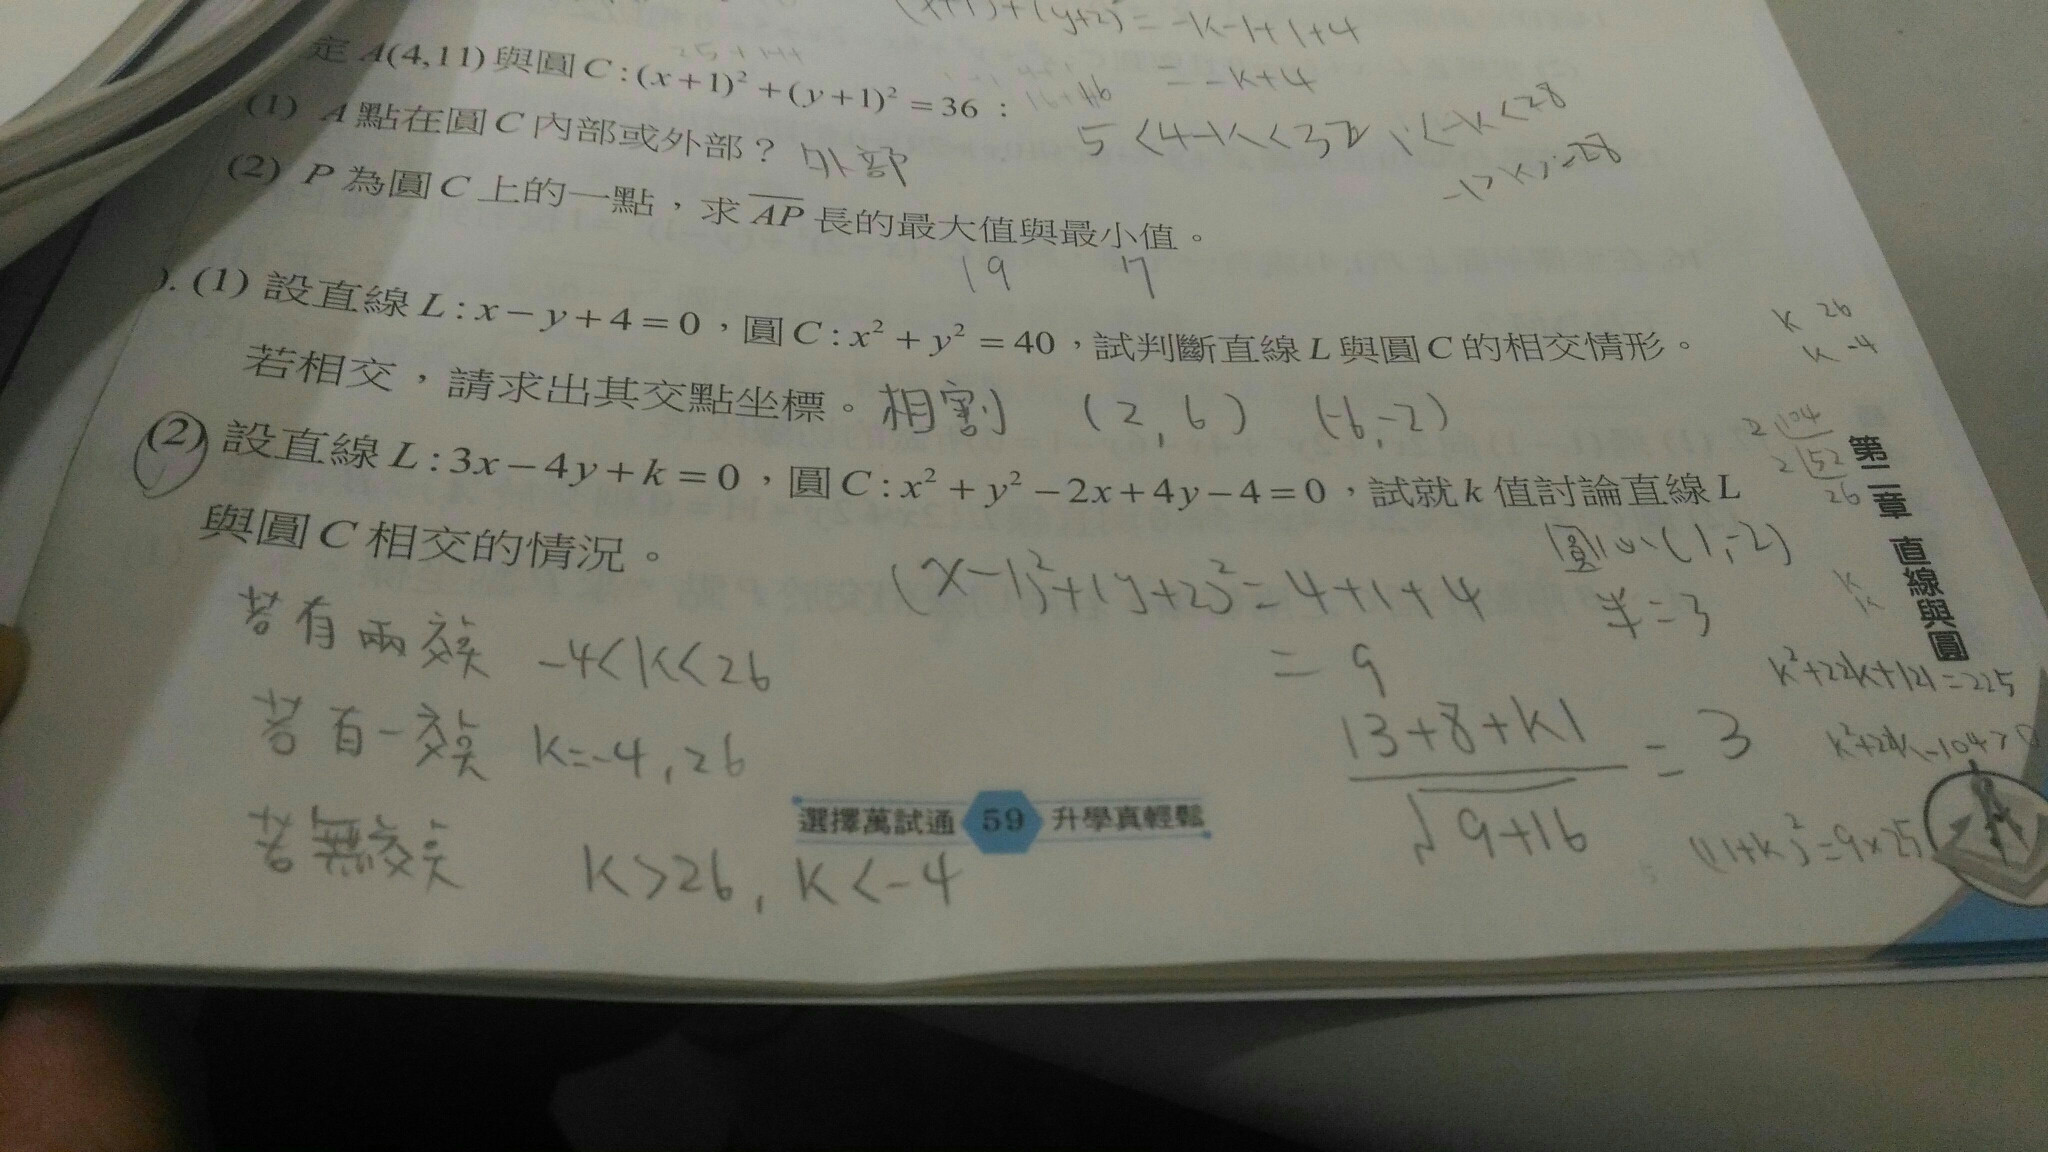 (x+1)²+(y+2)² = -k-1+1+4
= -k+4
定 A(4,11) 與圓 C : (x+1)² + (y+1)² = 36 :
5 < 4-k < 32 1 < -k < 28
-1 > k > -28
(1) A 點在圓 C 內部或外部? 外部
(2) P 為圓 C 上的一點,求 AP 長的最大值與最小值。
19 7
). (1) 設直線 L : x − y + 4 = 0,圓 C : x² + y² = 40,試判斷直線 L 與圓 C 的相交情形。
若相交,請求出其交點坐標。 相割 (2,6) (-6,-2)
k 26
k -4
(2) 設直線 L : 3x − 4y + k = 0,圓 C : x² + y² − 2x + 4y − 4 = 0,試就 k 值討論直線 L
與圓 C 相交的情況。
2 104
2 52
26
圓心(1,-2)
半=3
(x-1)²+(y+2)² = 4+1+4
= 9
|3+8+k|
√9+16
= 3
k²+22k+121=225
(11+k)²=9×25
若有兩交點 -4<k<26
若有一交點 k=-4, 26
若無交點 k>26, k<-4
第二章 直線與圓
選擇萬試通 59 升學真輕鬆